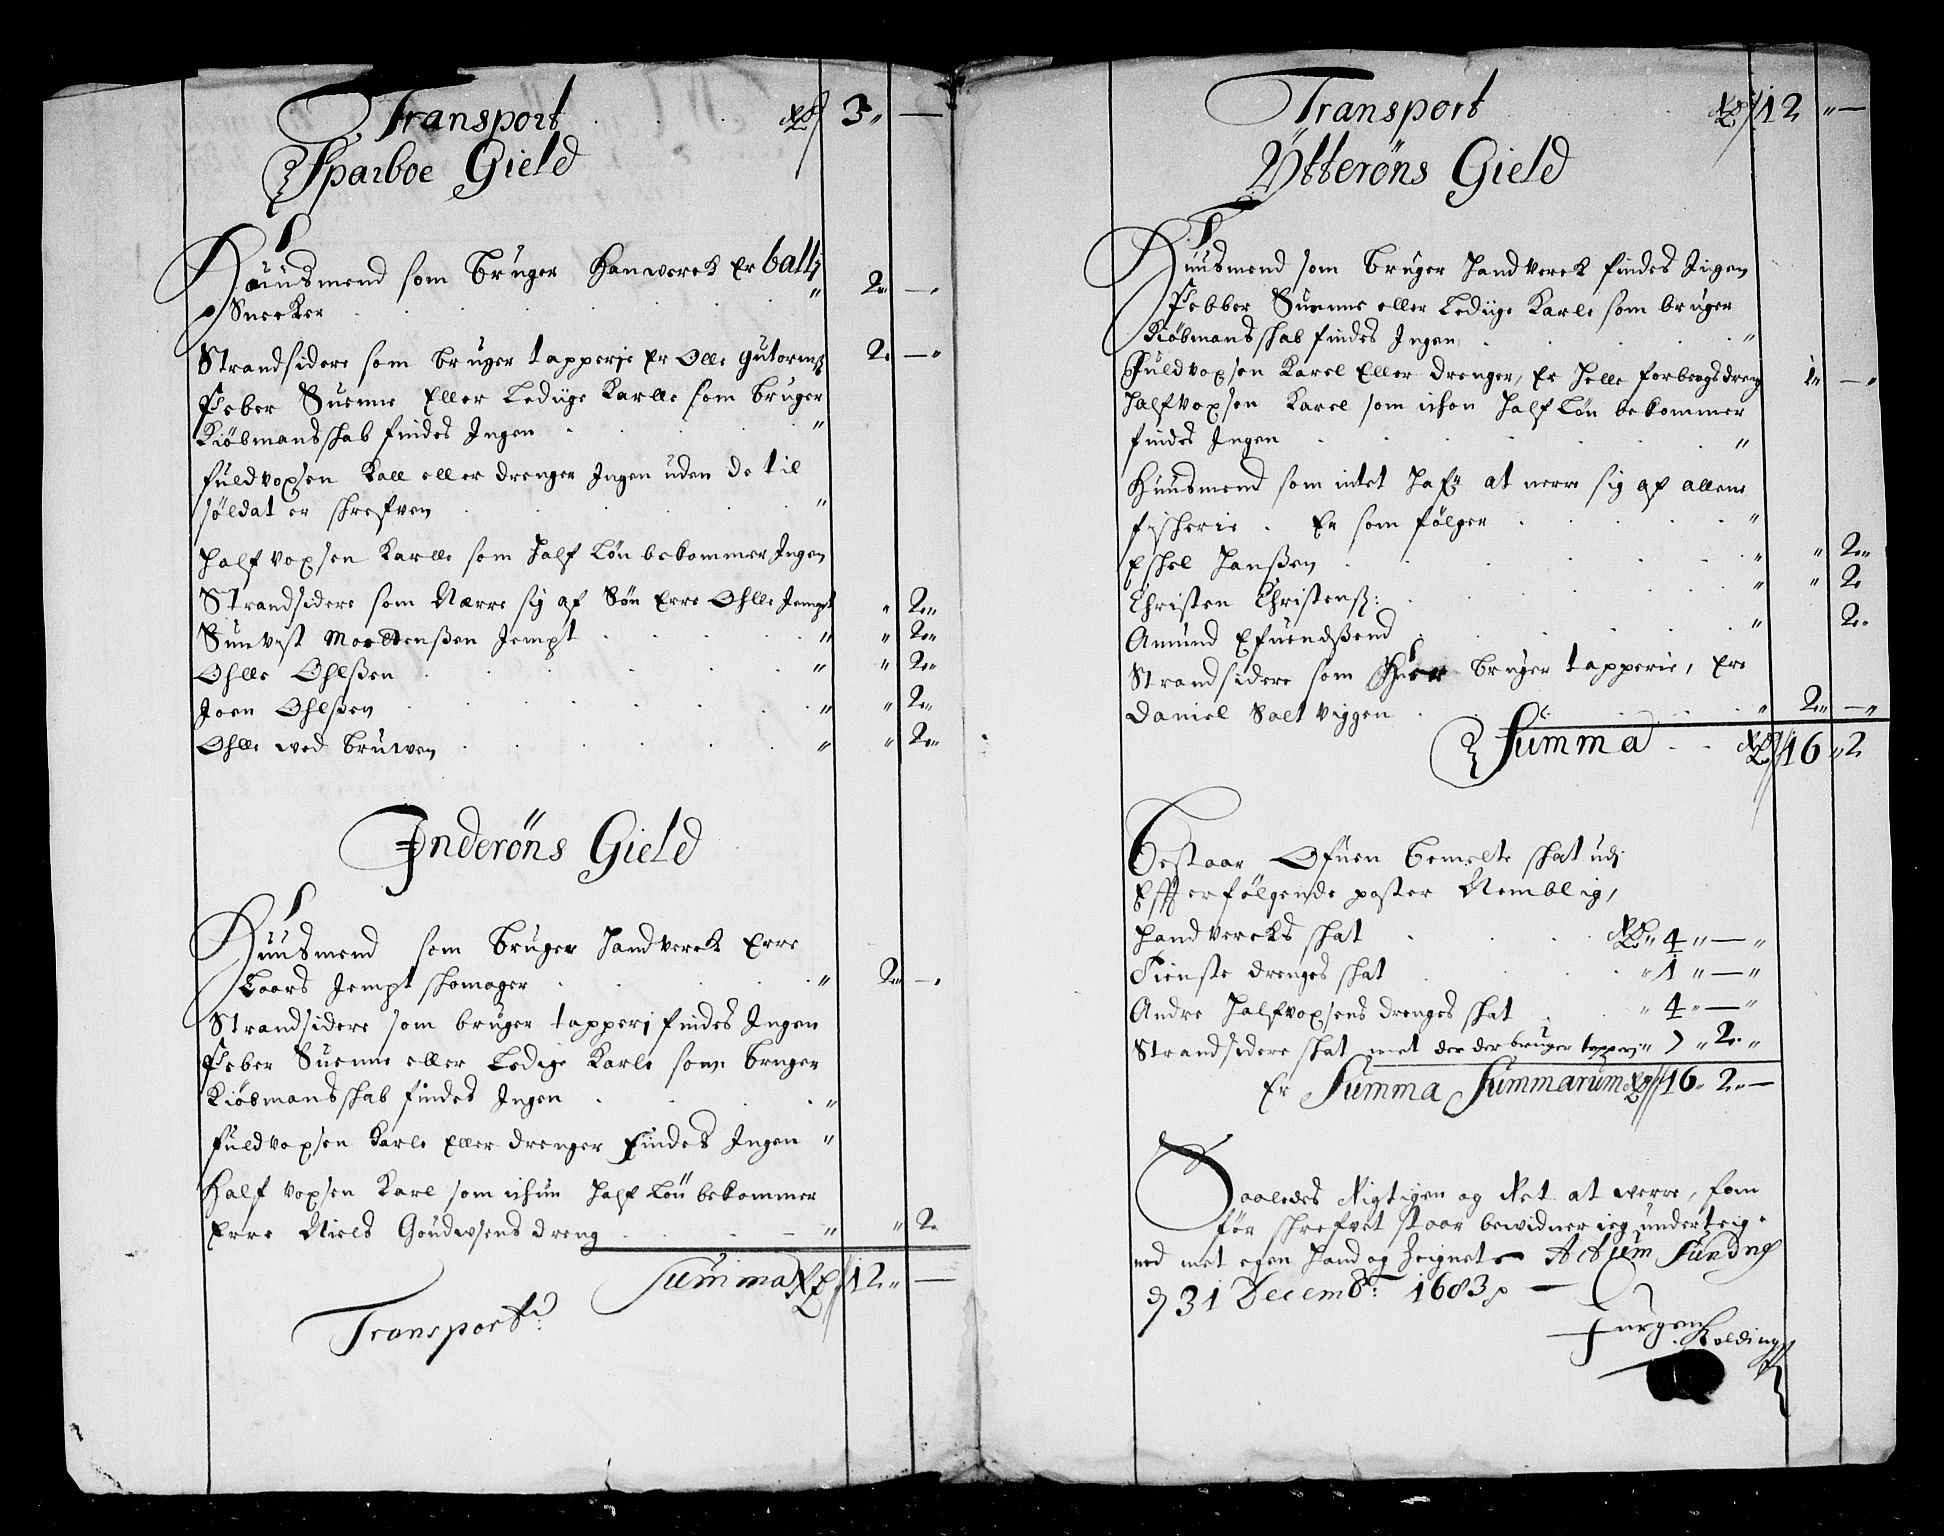 Transport . . . Rdr 3 " —
Sparboe Gield
Huusmend som bruger Hanverck Er baltz
Sneeker . . . " 2 " — "
Strandsidere som bruger tapperie Er Olle Gutormß 2 — "
Peber Suenne Eller Lediige Karlle som bruger
Kiøbmandsskab findes Ingen . . . "
fuldvoxsen Kall eller drenger Ingen uden de til
søldat er skrefven . . . "
Half voxsen Karlle som Half Løn bekommer Ingen
Strandsidere som Nærre sig af Søn Erre Ohlle Jempt " 2 "
Sunvist Mortenßen Jempt . . . " " 2 "
Ohlle Ohlßen . . . " " 2 "
Joen Ohlßen . . . " " 2 "
Ohlle wed bruwen . . . " " 2 "
Inderöns Gield
Huusmend som bruger Handverck Erre
Laars Jempt skomager . . . " 2 " — "
Strandsidere som bruger tapperj findes Ingen
Peber Suenne eller Ledige Karle som bruger
Kiöbmandsskab findes Ingen . . . "
fuldvoxsen Karle Eller drenger findes Ingen "
Half voxsen Karl som ichun Half Lön bekommer
Erre Niels dreng . . . " " 2
Summa Rdr 12 " —
Transport
Transport . . Rdr 12 " —
Ytteröns Gield
Huusmend som bruger Handverck findes Ingen
Pebber Suenne eller Lediige Karle som bruger
Kiöbmandsskab findes Ingen . . . "
Fuldvoxsen Karel Eller drenger, Er Helle forbergsdreng 1 " — "
Halfvoxsen Karel som ichon Half Løn bekommer
findes Ingen . . . "
Huusmend som intet Hafr at nerre sig af allene
fischerie . Er som følger . . . "
Eskel Hanßen . . . " " 2 "
Christen Christenß: . . . " " 2
Amund Efuendßend . . . " 2 "
Strandsidere som Her bruger tapperie, Ere
Daniel Salt viggen . . . " 2 " — "
Summa . . Rdr 16 " 2
Bestaar Ofuen bemelte skat udj
Effterfølgende poster Nemblig,
Handvercks skat . . . Rdr " 4 " — "
Tienste drenges skat . . . " 1 " — "
Andre Halfvoxsens drenges skat . . " 4 " — "
Strandsidere skat met der der bruger tapperj " 7 " 2 "
Er Summa Summarum Rdr 16 " 2 " —
Saaledes Rigtigen og Ret at were, som
før skrefvet staar bewidner ieg underteig-
ned met egen Hand og Zeignete Actum Sundnes
d 31 Decembr: 1683 —
Jurgen Kolding